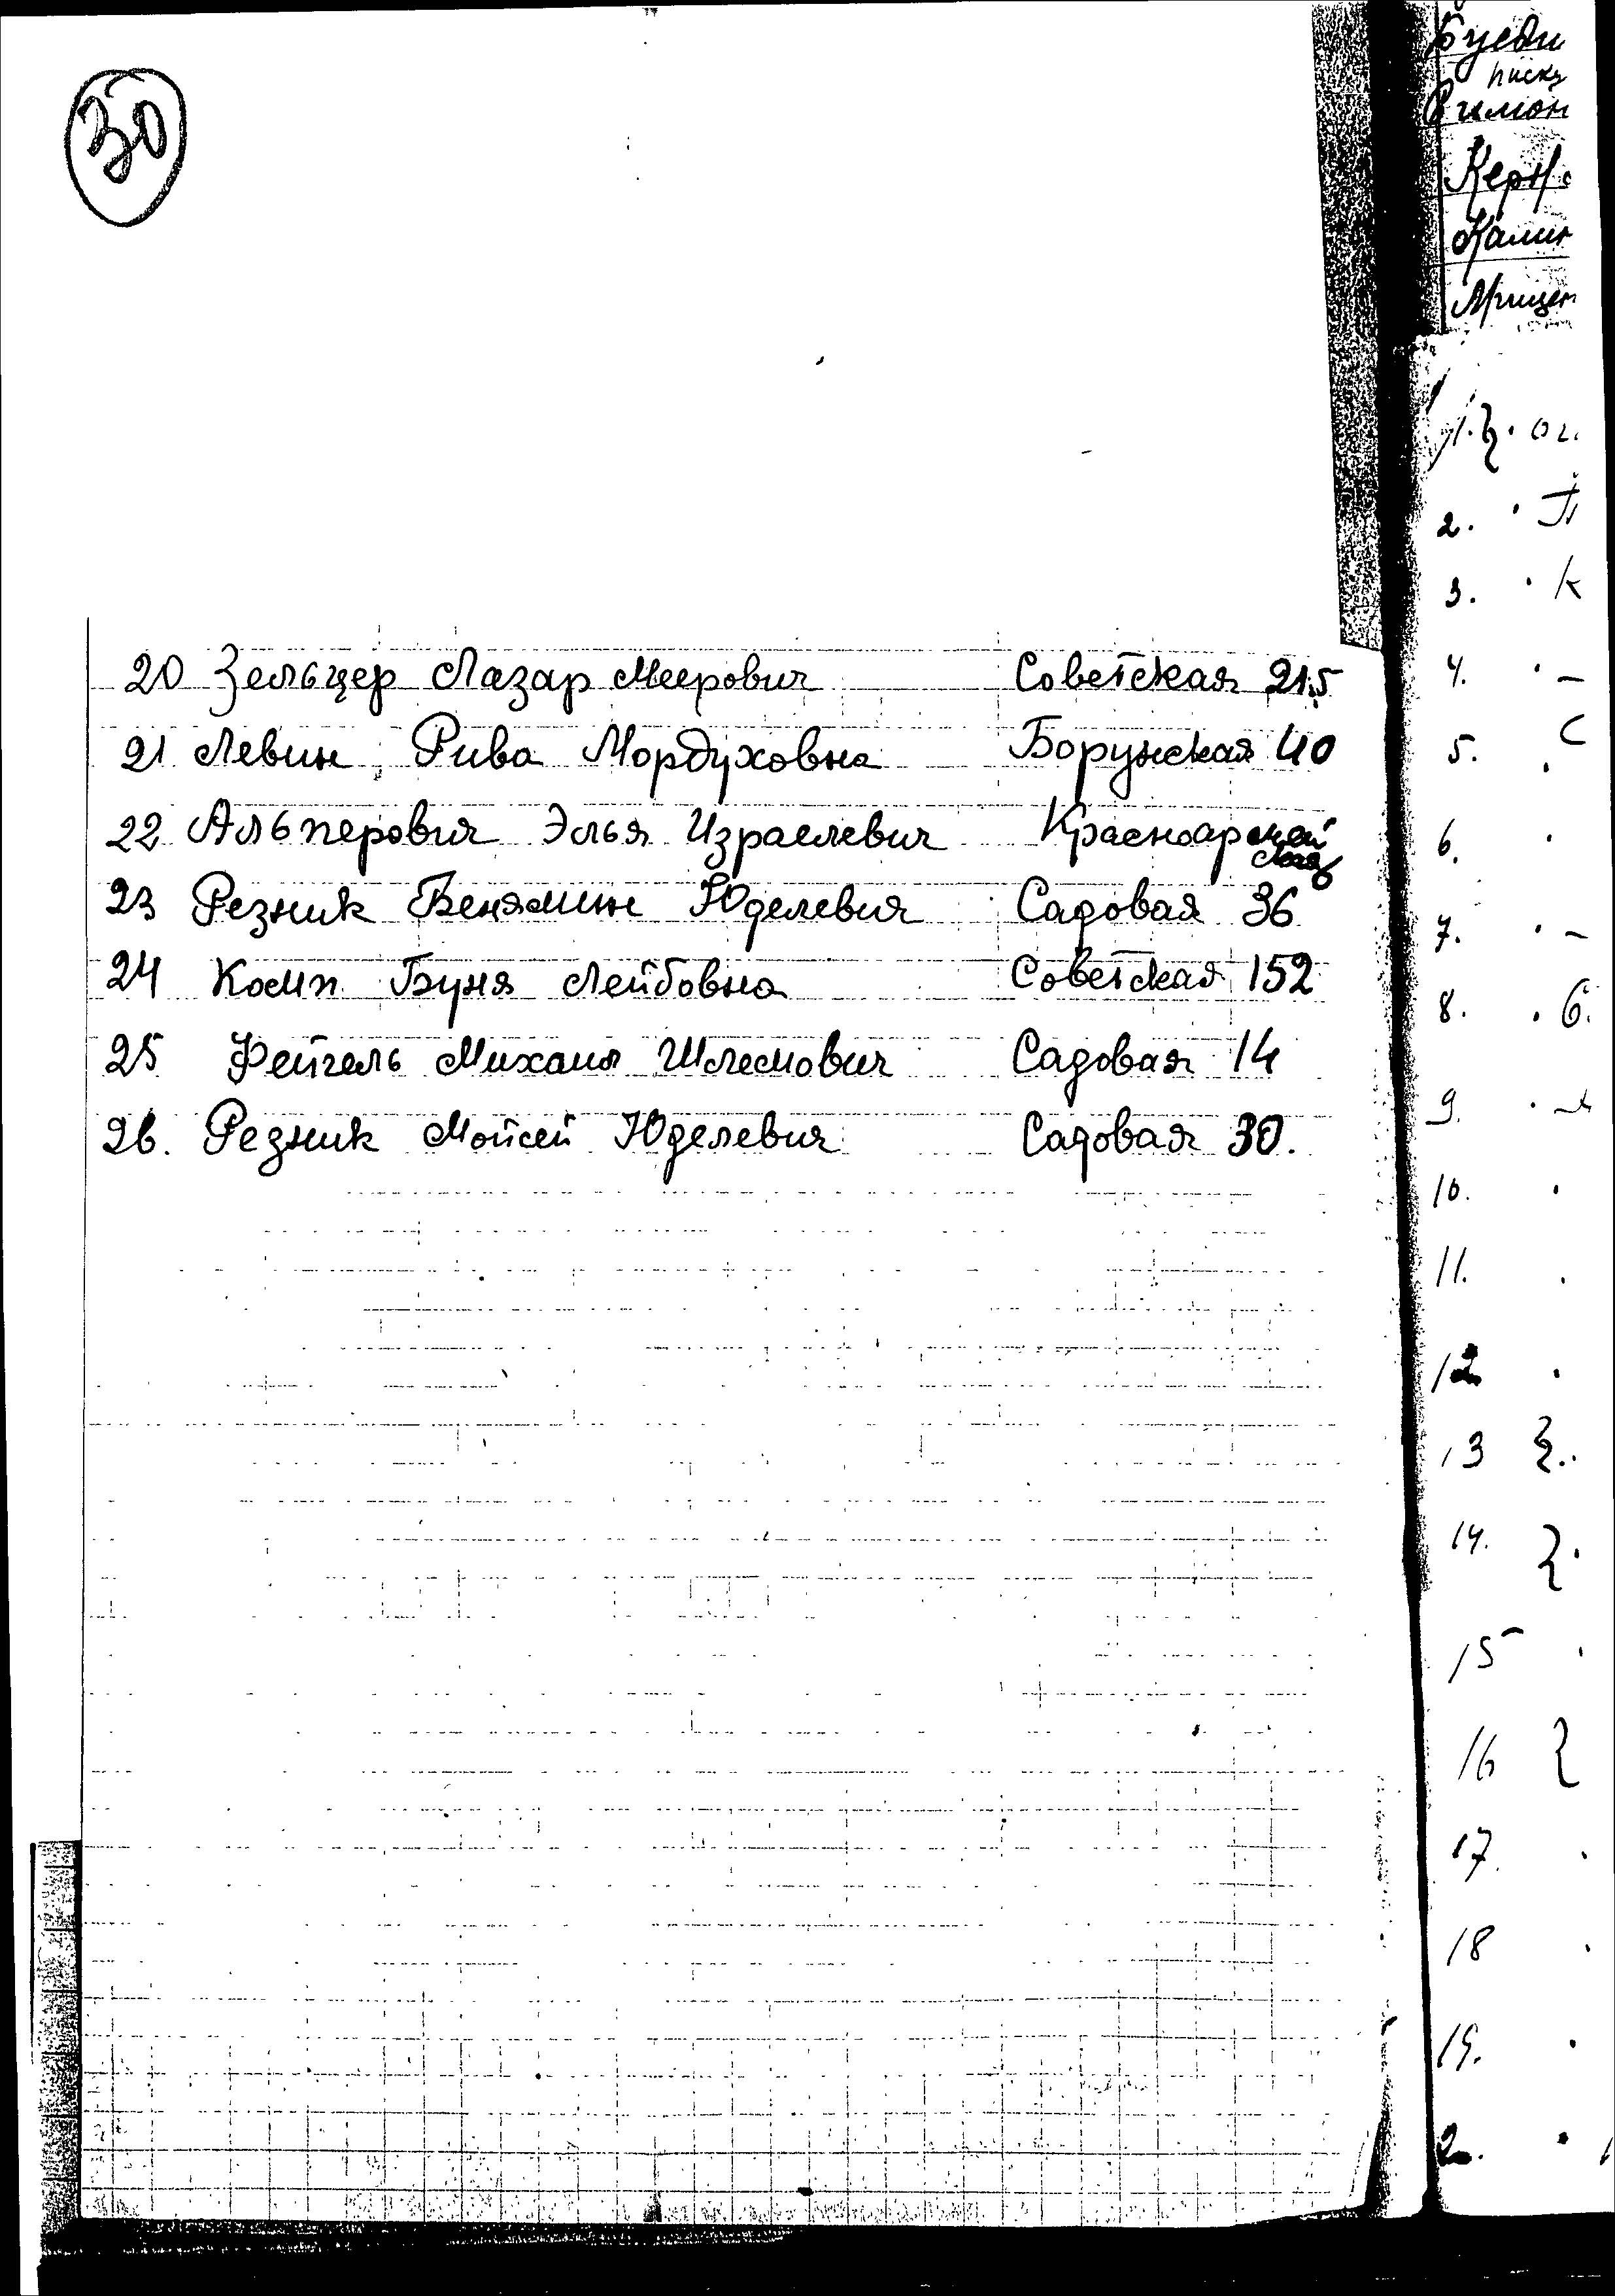 30
20 Зельцер Лазар Меерович Советская 215
21 Левин, Рива Мордуховна Борунская 40
22 Альперович Элья Израелевич Красноармей
23 Резник Бенямин Юделевич Садовая 36
24 Комп Буня Лейбовна Советская 152
25 Фейгель Михаил Шлемович Садовая 14
26. Резник Мойсей Юделевич Садовая 30.
2.
3. К
4.
5. С
6.
7.
8. 6.
9.
10.
11.
12
13
14.
15
16
17.
18
19.